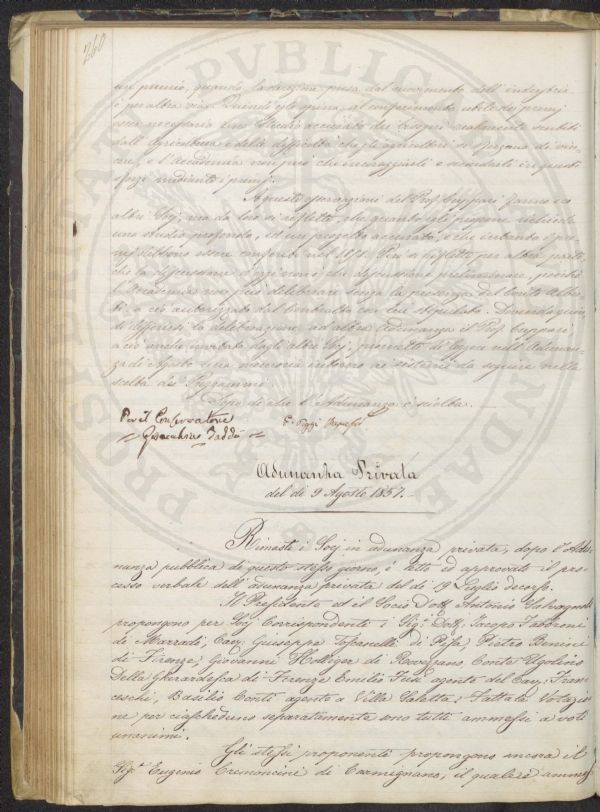 260
un premio, quando la Accademia presa dal movimento dell'industria
è per altra via. Quindi egli opina, al conferimento utile dei premj
esser necessaria una studio accurato dei bisogni realmente sentiti
dall'agricoltura e delle difficoltà che gli agricoltori si sforzano di vin-
cere, e l'Accademia non può che incoraggiarli e secondarli in questi
sforzi mediante i premj.
A queste osservazioni del Prof. Cuppari fanno eco
altri Soci, ma da loro si riflette che quanto egli propone richiede
uno studio profondo, ed un progetto accurato, e che intanto i pre-
mj debbono essere conferiti nel 1858. Poi si riflette per altra parte
che la discussione d'oggi non è che discussione preliminare, poichè
l'Accademia non può deliberare senza la presenza del Conte Alber-
ti, o ciò autorizzato dal Contratto con lui stipulato. Dovendo quin-
di differirsi la deliberazione ad altra Adunanza il Prof. Cuppari,
a ciò anche invitato dagli altri Soci, promette di leggere nell'Adunan-
za di Agosto una memoria intorno al sistema da seguire nella
scelta dei Programmi.
Dopo di che l'Adunanza è sciolta.
Per il Conservatore
Gioacchino Taddei
Adunanza Privata
del dì 9 Agosto 1857.
Rimasti i Socj in adunanza privata, dopo l'Adu-
nanza pubblica di questo stesso giorno, è letto ed approvato il pro-
cesso verbale dell'adunanza privata del dì 19 Luglio decorso.
Il Presidente ed il Socio Dott. Antonio Salvagnoli
propongono per Socj Corrispondenti i Sigg. Dott. Jacopo Fabroni
di Marradi, Cav. Giuseppe Toscanelli di Pisa, Pietro Benini
di Firenze, Giovanni Holliger di Rovezzano, Conte Ugolino
Della Gherardesca di Firenze, Emilio Tusi agente del Cav. Fran-
ceschi, Basilio Conti agente a Villa Saletta; Fattala Votazio-
ne per ciascheduno separatamente sono tutti ammessi a voti
unanimi.
Gli stessi proponenti propongono ancora il
Sig.r Eugenio Cremoncini di Carmignano, il quale è ammes-